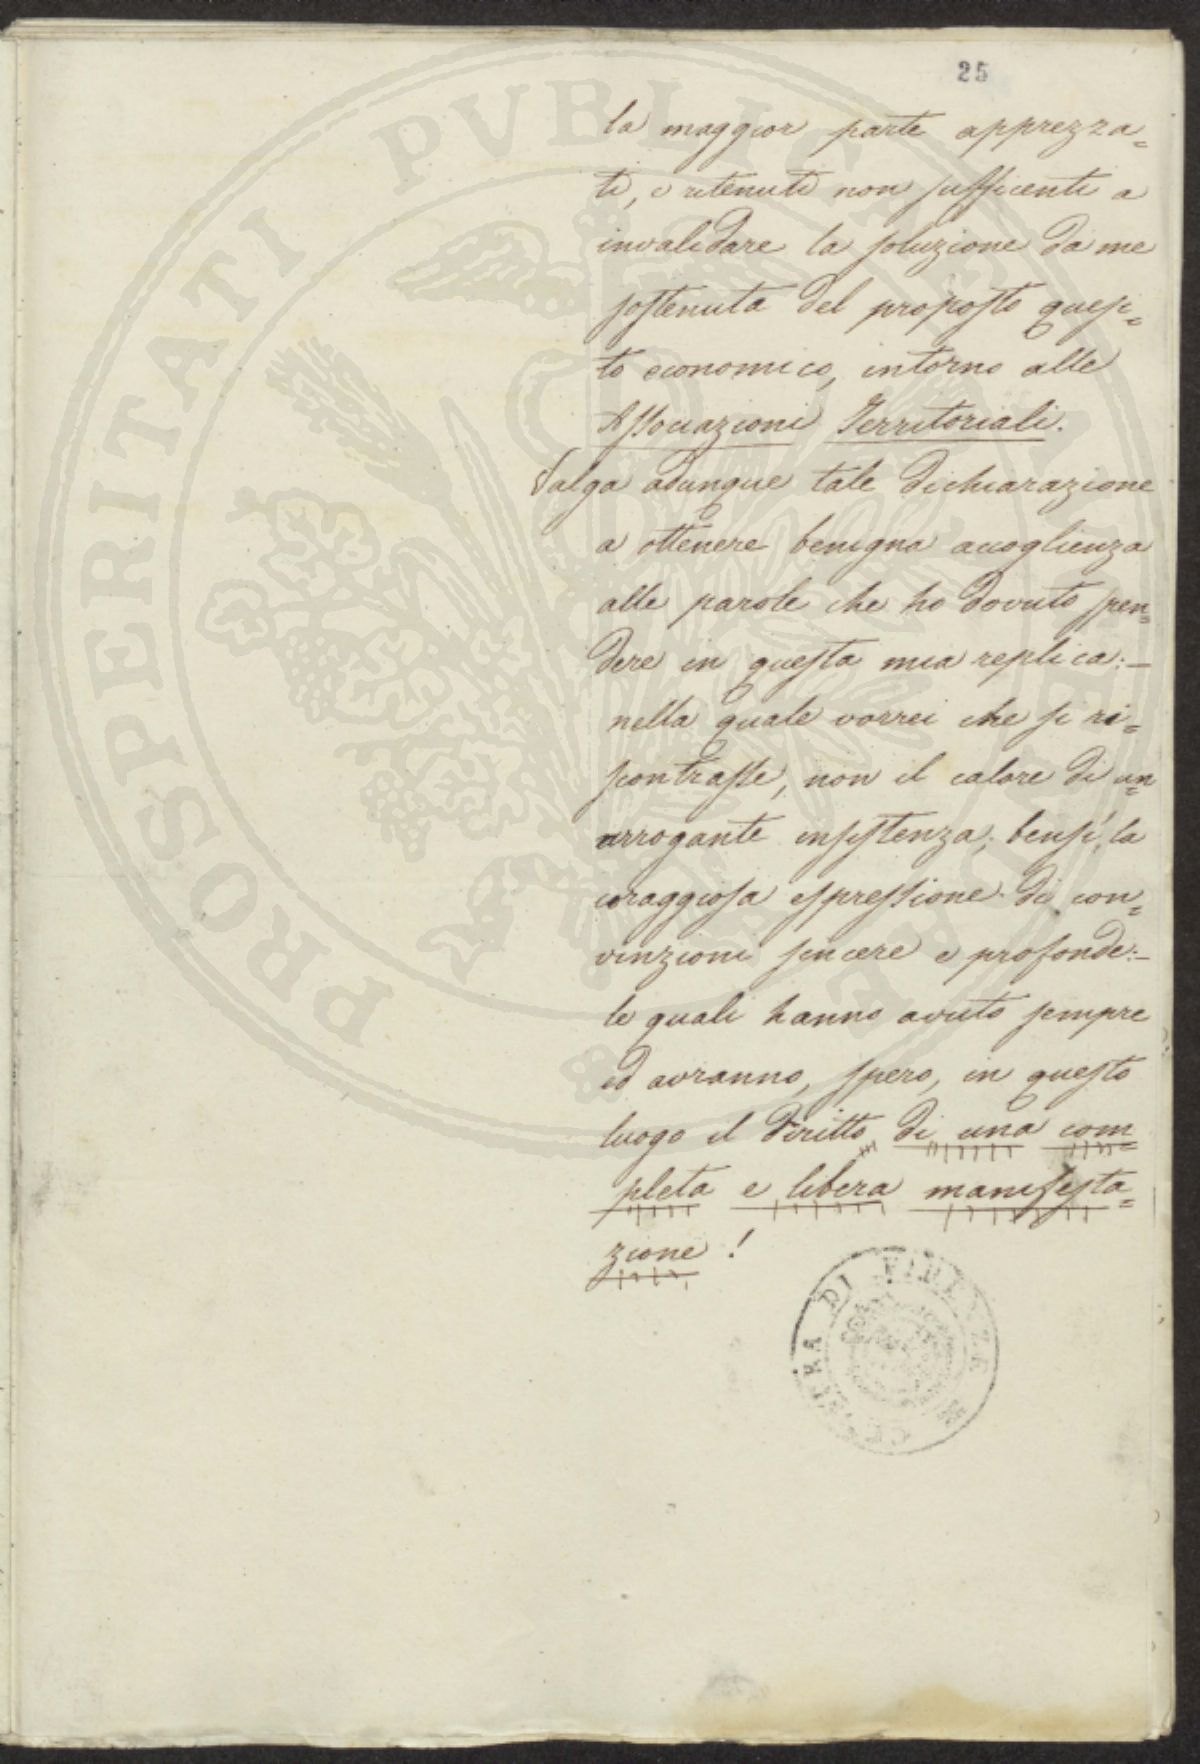 25
la maggior parte apprezza=
ti, e ritenuti non sufficenti a
invalidare la soluzione da me
sostenuta del proposto quesi=
to economico, intorno alle
Associazioni Territoriali.
Valga adunque tale dichiarazione
a ottenere benigna accoglienza
alle parole che ho dovuto spen=
dere in questa mia replica:—
nella quale vorrei che si ri=
scontrasse, non il calore di un=
arrogante insistenza; bensì, la
coraggiosa espressione di con=
vinzioni sincere e profonde:—
le quali hanno avuto sempre
ed avranno, spero, in questo
luogo il diritto di una com=
pleta e libera manifesta=
zione!
DI FIRENZE
PROSPERITATI PVBLICAE